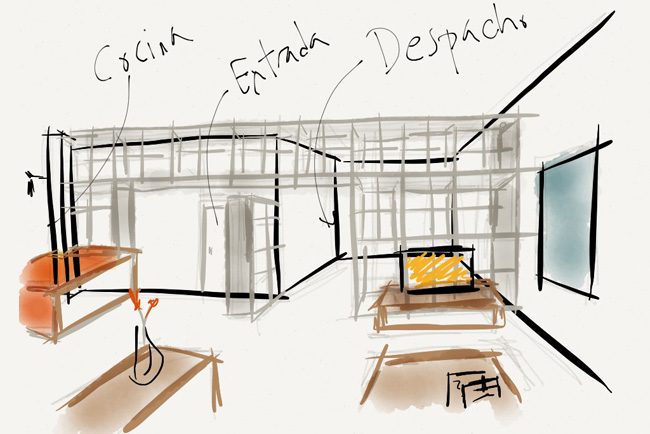 Cocina
Entrada
Despacho